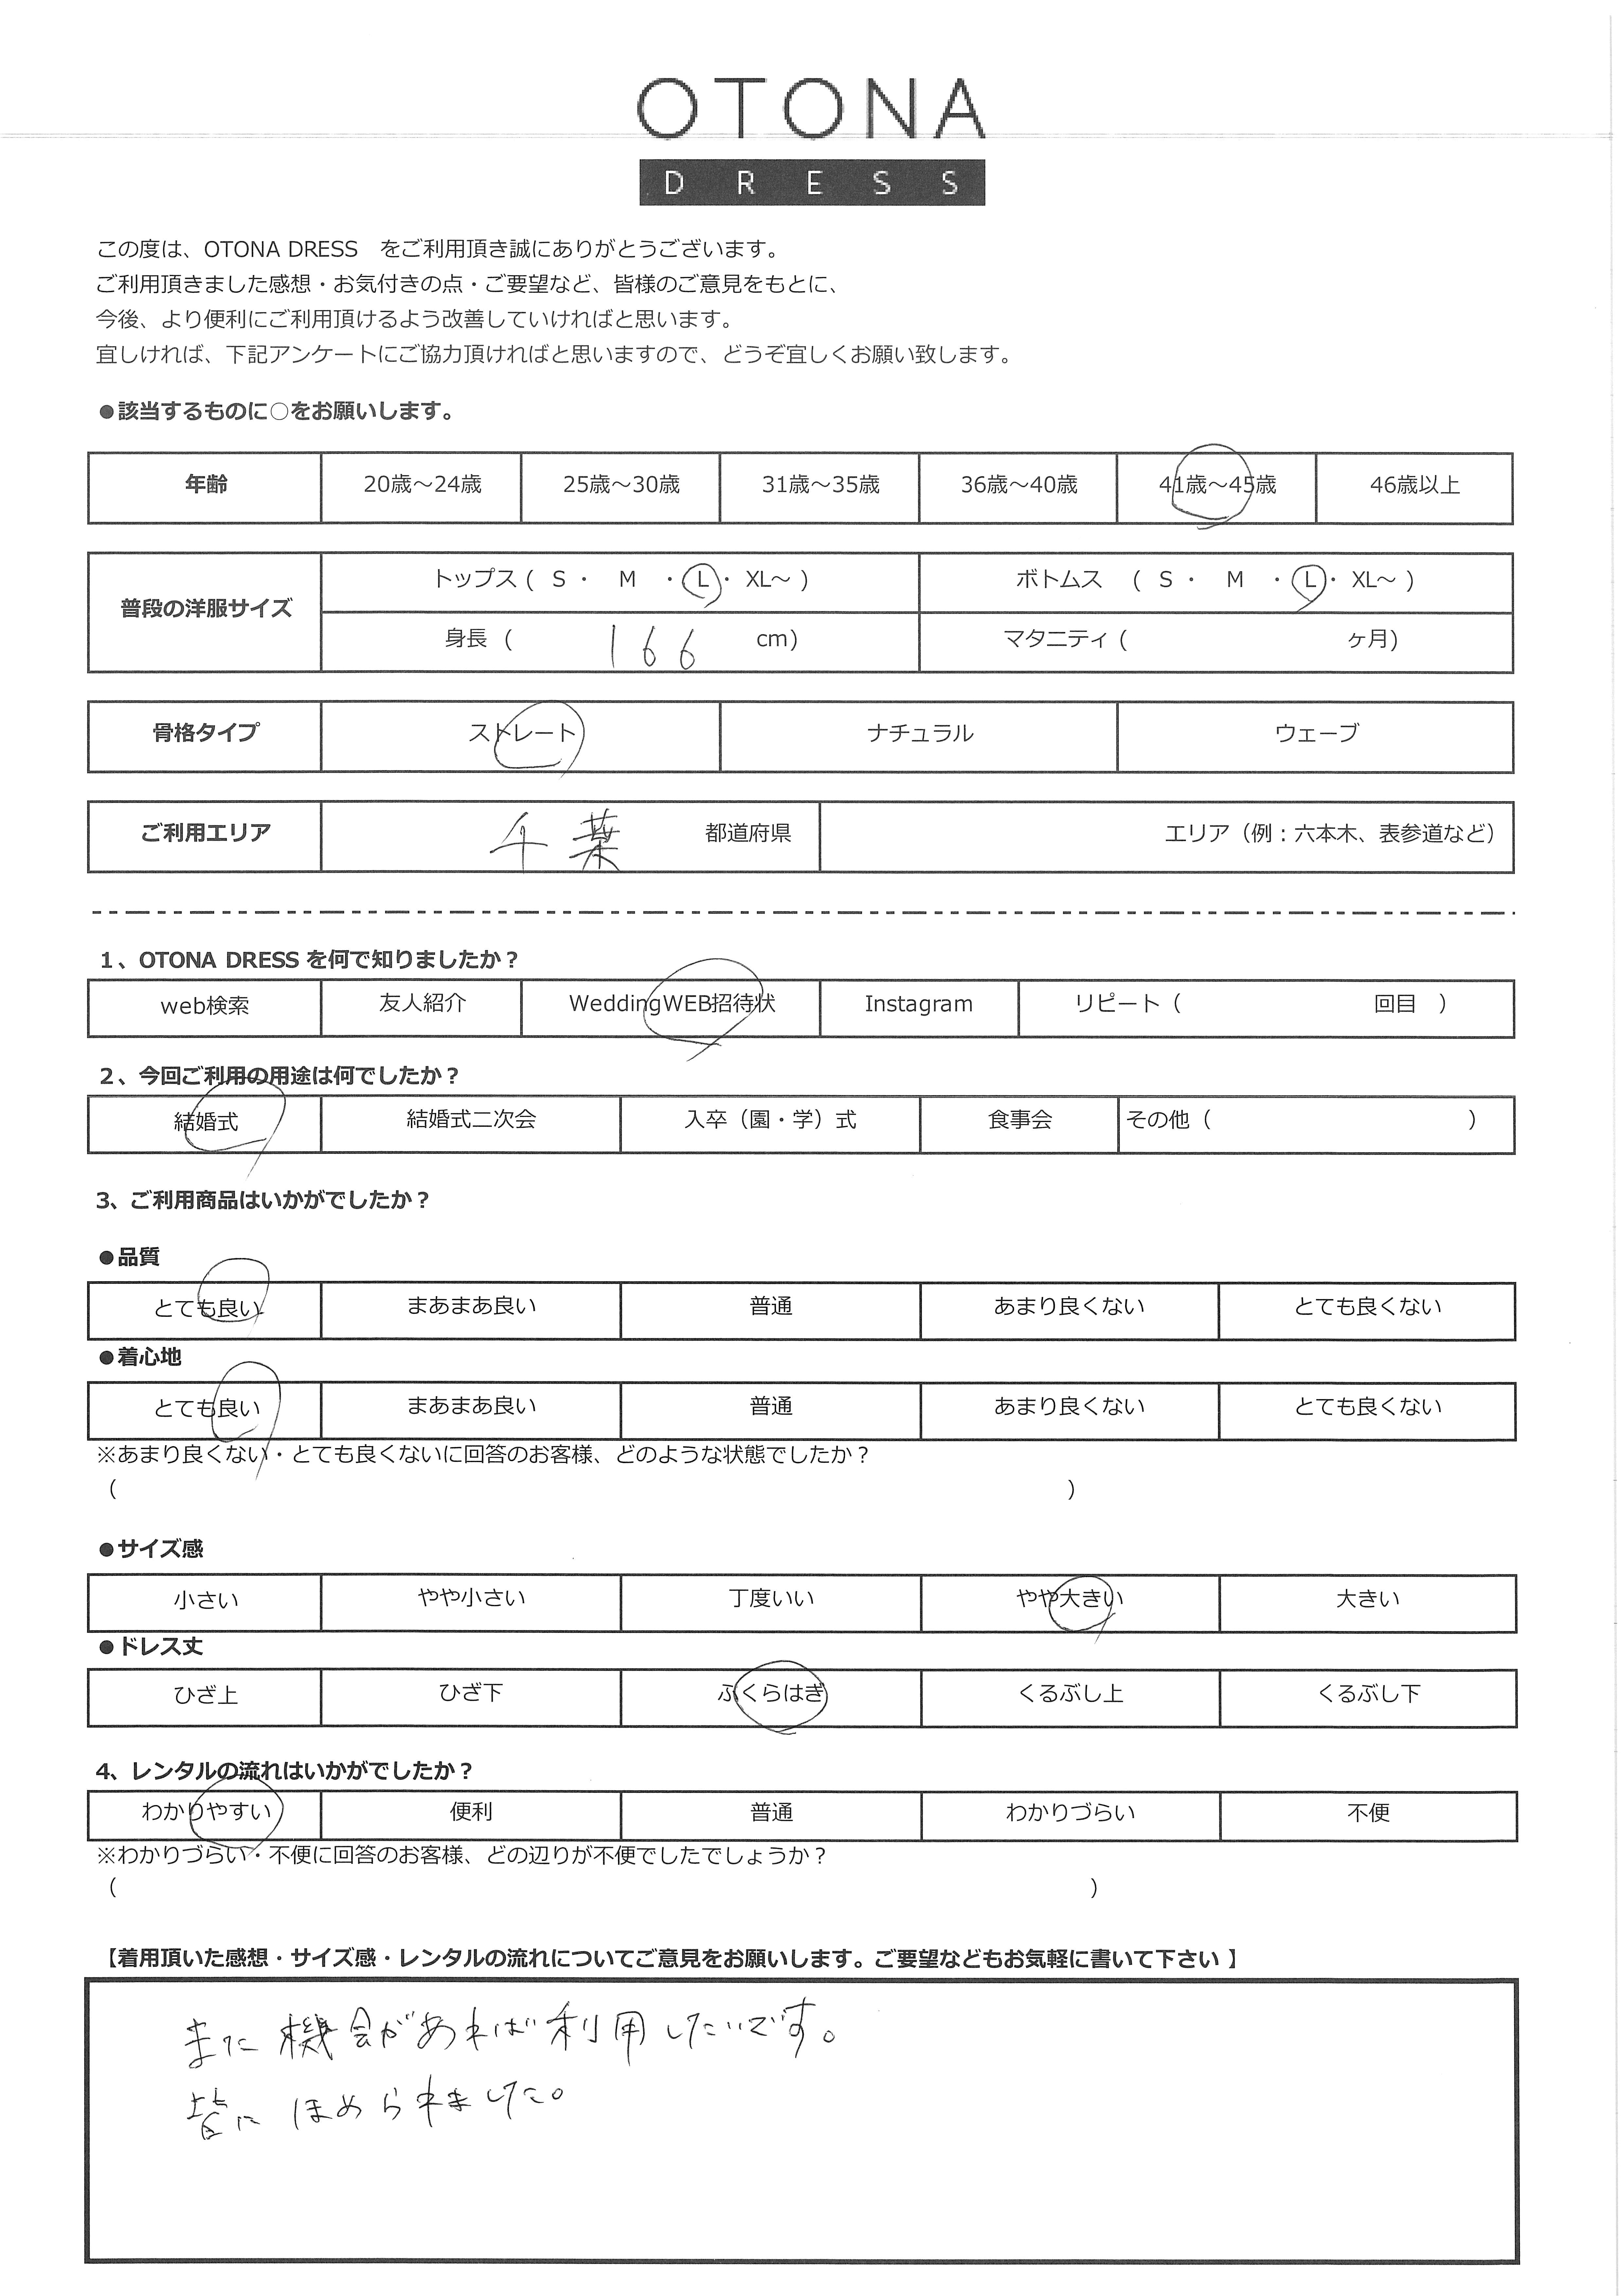 OTONA
DRESS
この度は、OTONA DRESS　をご利用頂き誠にありがとうございます。
ご利用頂きました感想・お気付きの点・ご要望など、皆様のご意見をもとに、
今後、より便利にご利用頂けるよう改善していければと思います。
宜しければ、下記アンケートにご協力頂ければと思いますので、どうぞ宜しくお願い致します。
●該当するものに○をお願いします。
年齢 20歳～24歳 25歳～30歳 31歳～35歳 36歳～40歳 41歳～45歳 46歳以上
普段の洋服サイズ トップス ( S ・ M ・ L ・ XL～ ) ボトムス ( S ・ M ・ L ・ XL～ )
身長 ( 166 cm) マタニティ ( ヶ月)
骨格タイプ ストレート ナチュラル ウェーブ
ご利用エリア 千葉 都道府県 エリア（例：六本木、表参道など）
1、OTONA DRESS を何で知りましたか？
web検索 友人紹介 WeddingWEB招待状 Instagram リピート（ 回目 ）
2、今回ご利用の用途は何でしたか？
結婚式 結婚式二次会 入卒（園・学）式 食事会 その他（ ）
3、ご利用商品はいかがでしたか？
●品質
とても良い まあまあ良い 普通 あまり良くない とても良くない
●着心地
とても良い まあまあ良い 普通 あまり良くない とても良くない
※あまり良くない・とても良くないに回答のお客様、どのような状態でしたか？
（ ）
●サイズ感
小さい やや小さい 丁度いい やや大きい 大きい
●ドレス丈
ひざ上 ひざ下 ふくらはぎ くるぶし上 くるぶし下
4、レンタルの流れはいかがでしたか？
わかりやすい 便利 普通 わかりづらい 不便
※わかりづらい・不便に回答のお客様、どの辺りが不便でしたでしょうか？
（ ）
【着用頂いた感想・サイズ感・レンタルの流れについてご意見をお願いします。ご要望などもお気軽に書いて下さい 】
また機会があれば利用したいです。
皆にほめられました。